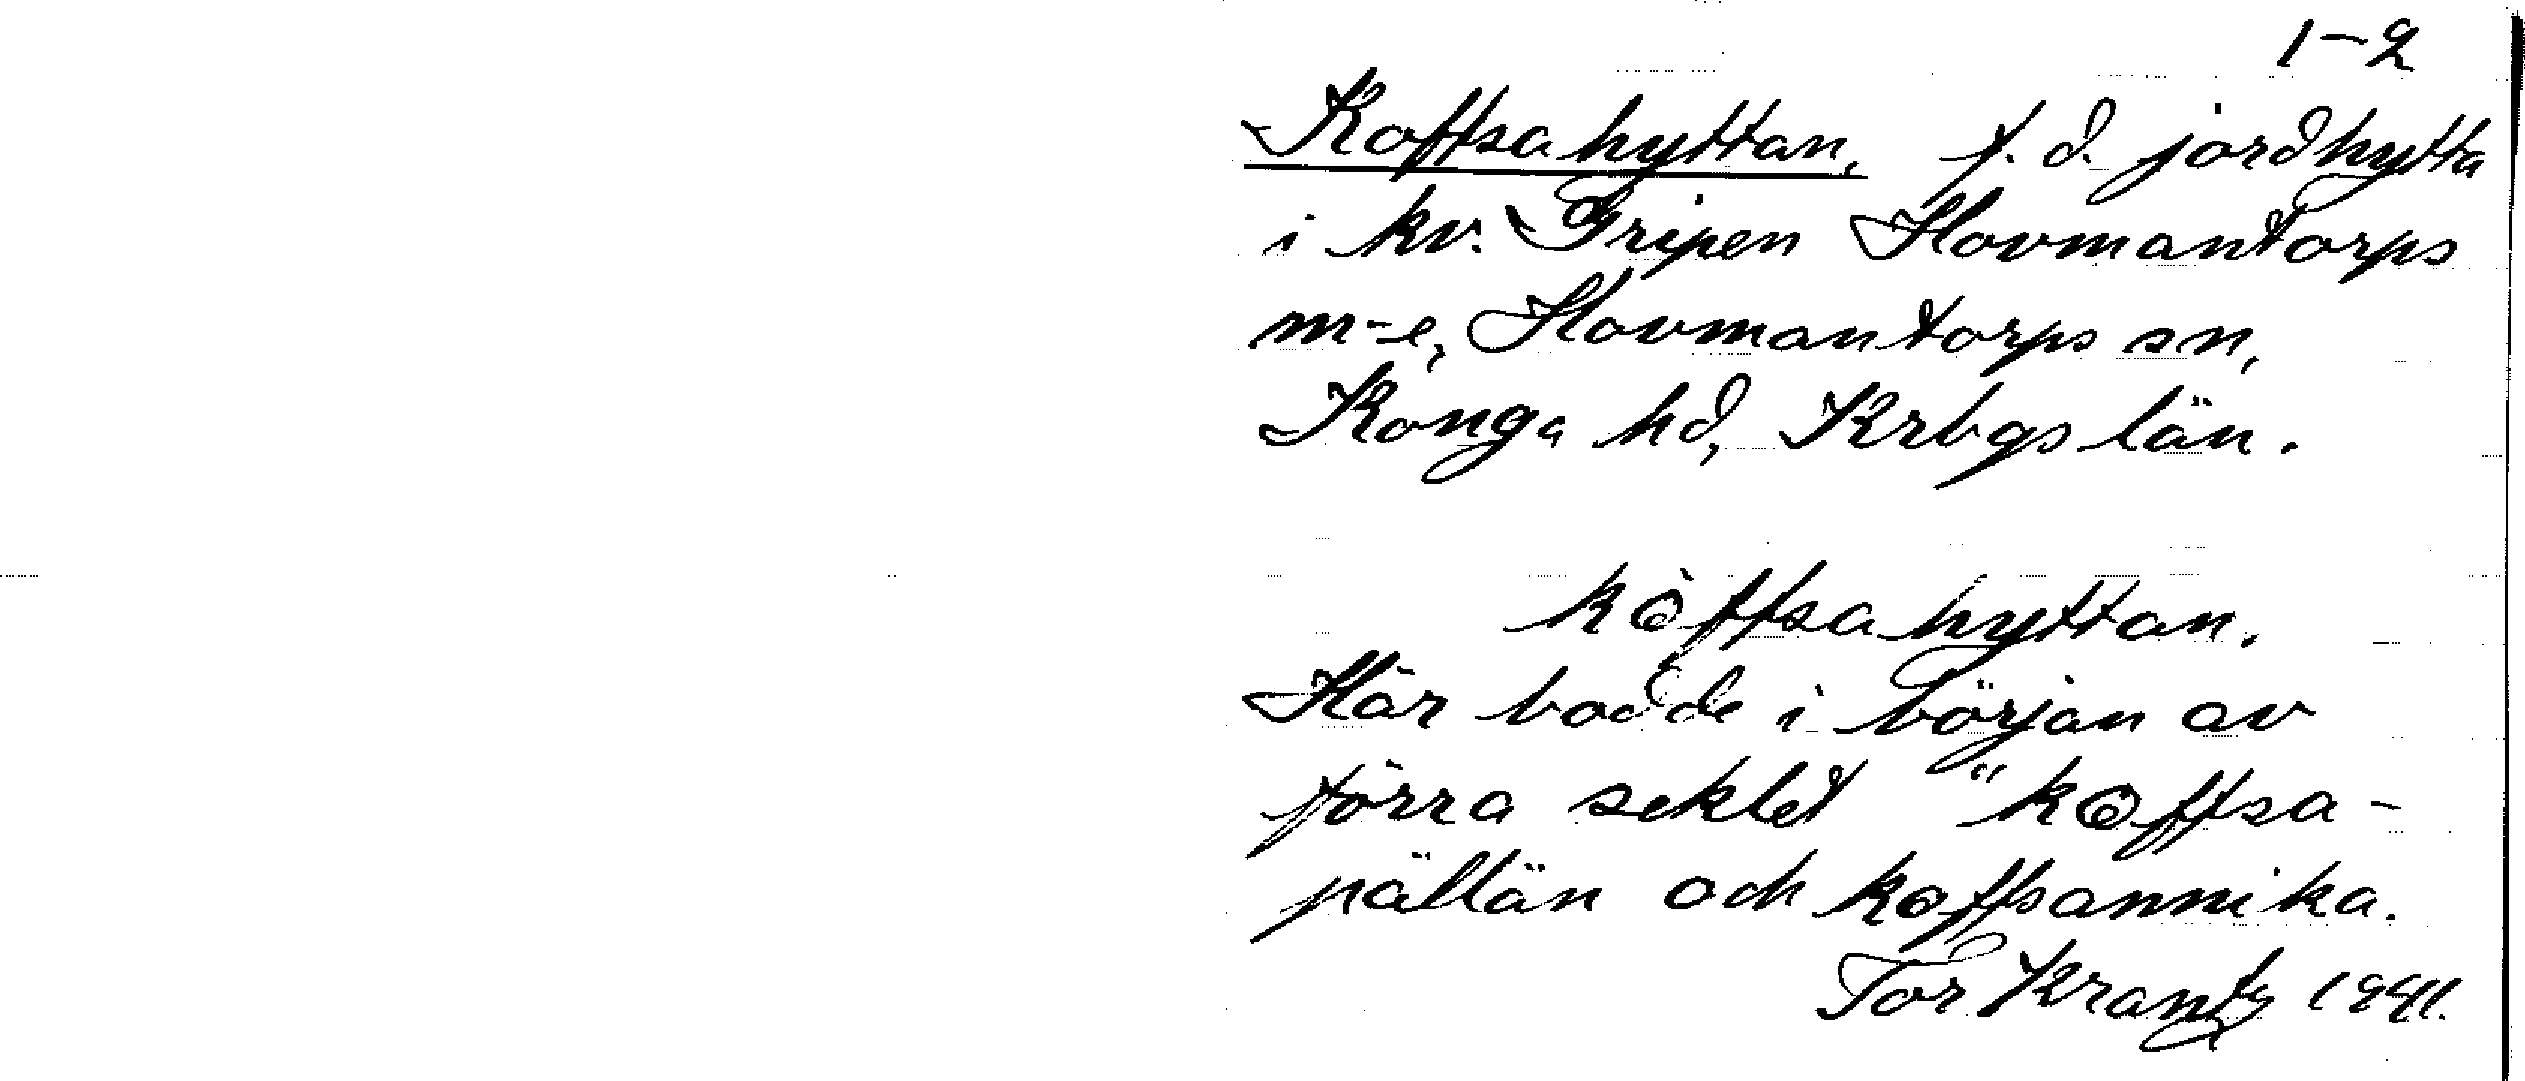 1-2
Koffsahyttan, f.d. jordhytta
i kv. Gripen Hovmantorps
m-e, Hovmantorps sn,
Konga hd, Krbgs län.
kòffsahyttan.
Här bodde i början av
förra seklet "koffsa-
pällän och koffsannika.
Tor Krantz 1941.